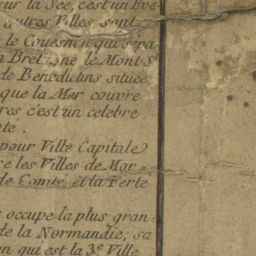 sur la Sée, c'est un Eve
autres Villes sont
le Couesnon qui sépa
a Bretagne le Mont S.
de Benedictins située
que la Mer couvre
res c'est un celebre
té.
pour Ville Capitale
re les Villes de Mor
de Comté, et la Ferte
occupe la plus gran
de la Normandie, sa
en qui est la 3.e Ville